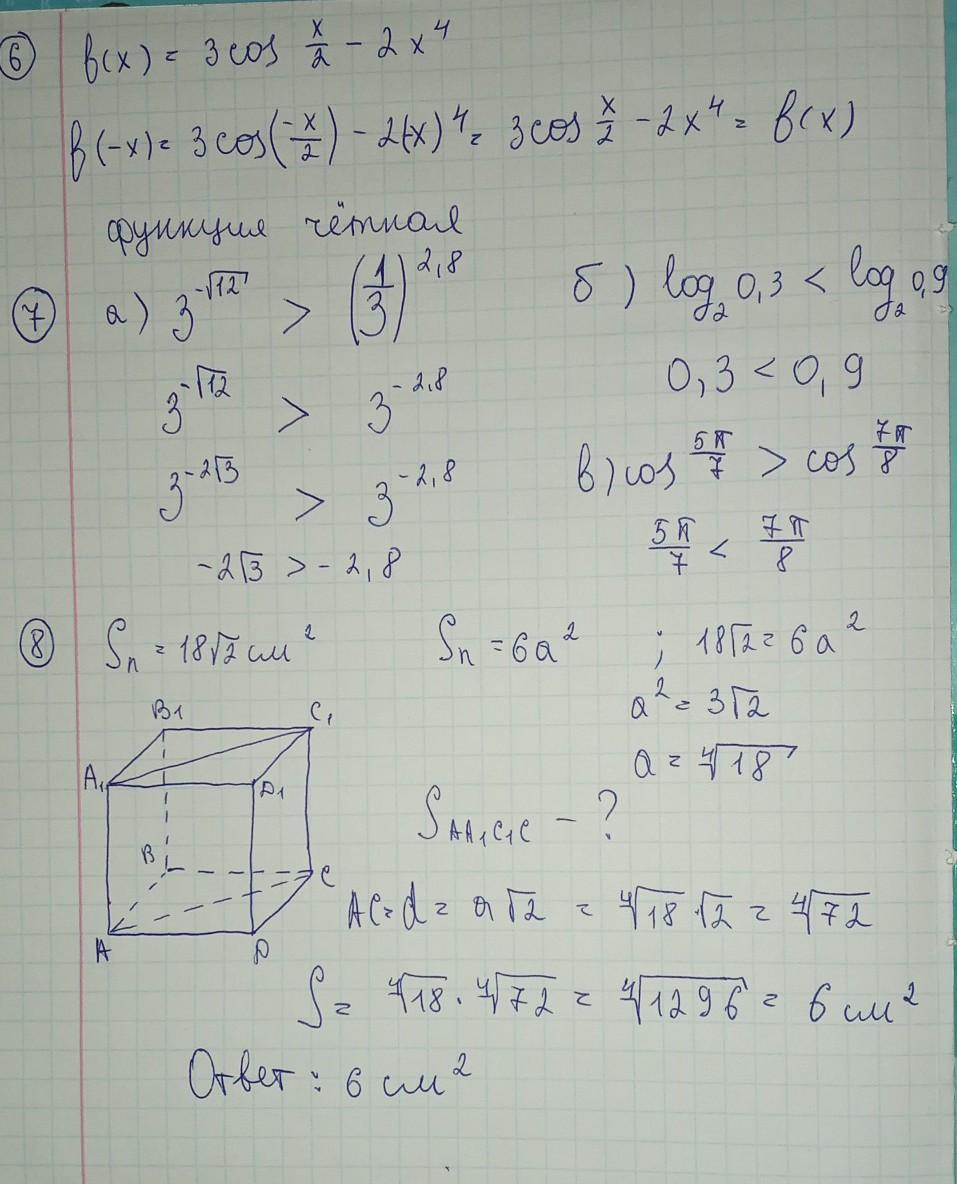 6 f(x) = 3cos x/2 - 2x⁴
f(-x) = 3cos(-x/2) - 2(-x)⁴ = 3cos x/2 - 2x⁴ = f(x)
функция чётная
7 а) 3^(-√12) > (1/3)^2,8
3^(-√12) > 3^(-2,8)
3^(-2√3) > 3^(-2,8)
-2√3 > -2,8
б) log₂ 0,3 < log₂ 0,9
0,3 < 0,9
в) cos 5π/7 > cos 7π/8
5π/7 < 7π/8
8 Sп = 18√2 см² Sп = 6a² ; 18√2 = 6a²
a² = 3√2
a = ⁴√18
B1 C1
A1 D1
B C
A D
S AA1C1C - ?
AC = d = a√2 = ⁴√18 · √2 = ⁴√72
S = ⁴√18 · ⁴√72 = ⁴√1296 = 6 см²
Ответ : 6 см²